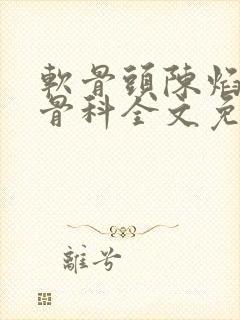 軟骨頭陳焰
骨科全文免
離兮